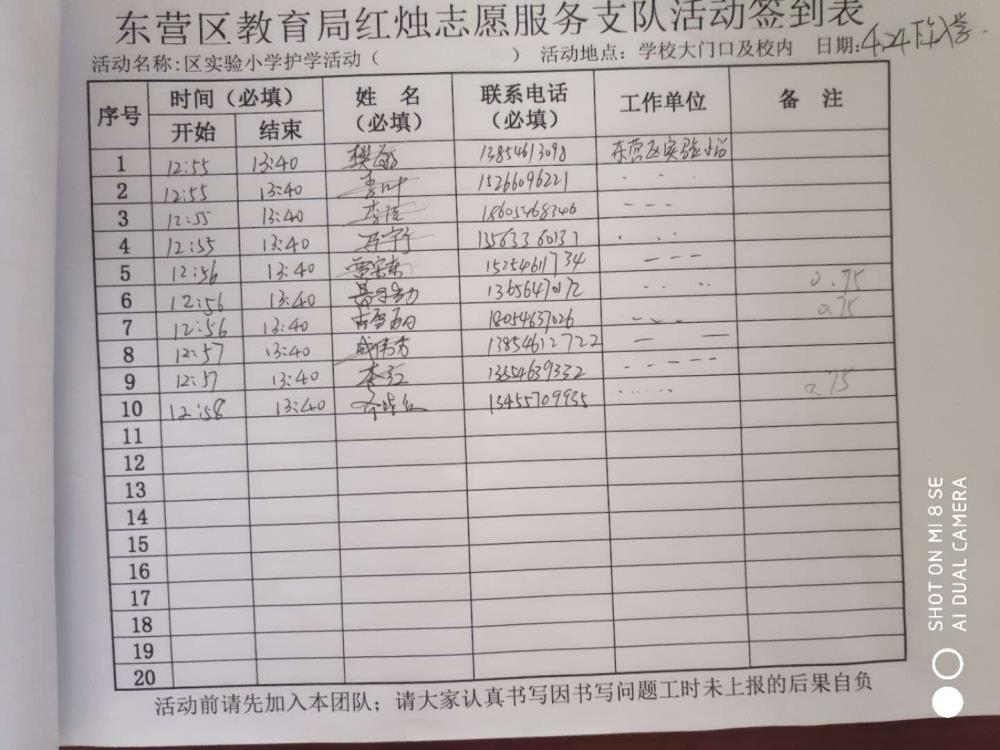 东营区教育局红烛志愿服务支队活动签到表
活动名称:区实验小学护学活动（ ） 活动地点：学校大门口及校内 日期:4.24下午入学.
序号 时间（必填） 姓 名（必填） 联系电话（必填） 工作单位 备 注
开始 结束
1 12:55 13:40 13854613098 东营区实验小学
2 12:55 13:40 15266096221
3 12:55 13:40 李洁 18605468346
4 12:55 13:40 13563360137
5 12:56 13:40 15254611734 ---
6 12:56 13:40 13656470172 0.75
7 12:56 13:40 18054637026 0.75
8 12:57 13:40 13854612722
9 12:57 13:40 李红 13354639332
10 12:58 13:40 13455709935 0.75
11
12
13
14
15
16
17
18
19
20
活动前请先加入本团队；请大家认真书写因书写问题工时未上报的后果自负
SHOT ON MI 8 SE
AI DUAL CAMERA